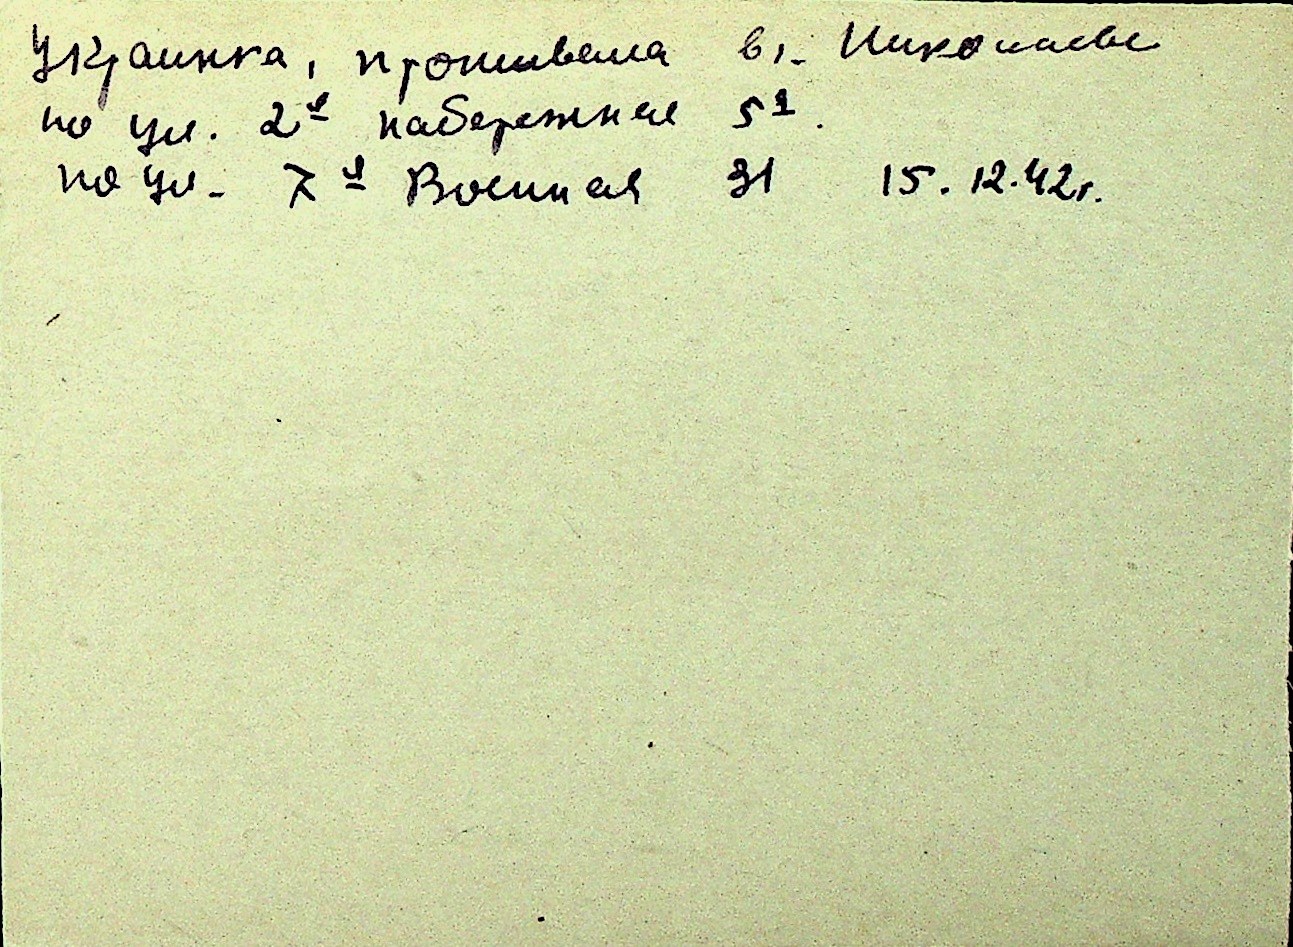 Украинка, проживала в г. Николаеве
по ул. 2я набережная 51.
по ул. 7я Военная 31 15.12.42г.